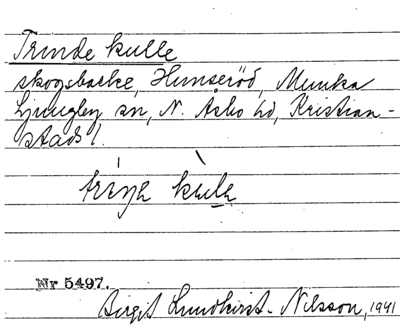 Trinde kulle
skogsbacke, Hunseröd, Munka
Ljungby sn, N. Åsbo hd, Kristian-
stads l.
kulle
Nr 5497.
Birgit Lundkvist-Nilsson, 1941